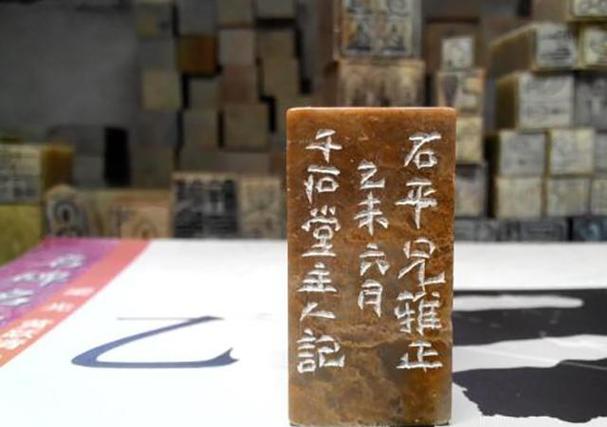 石平兄雅正
乙未六月
千石堂主人記
乙